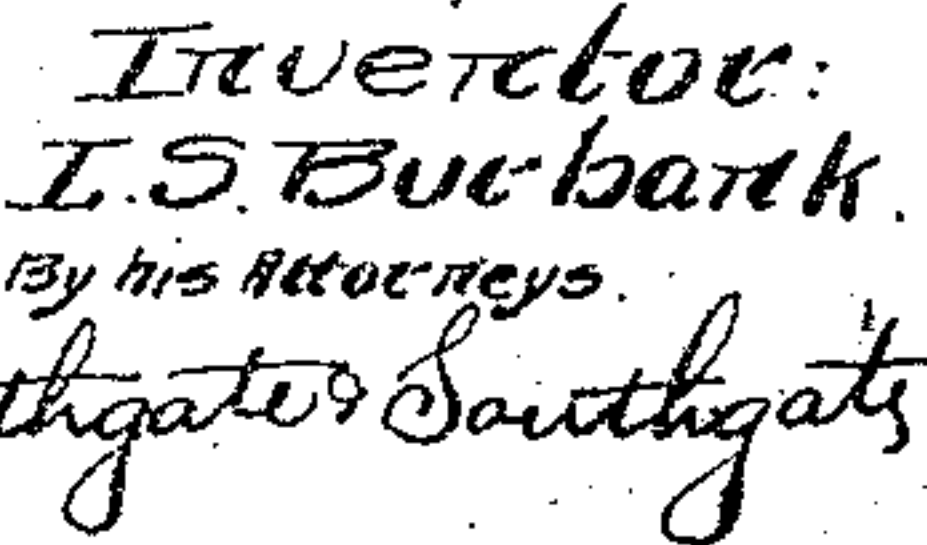 Inventor:
I.S. Burbank.
By his Attorneys.
thgate & Southgate